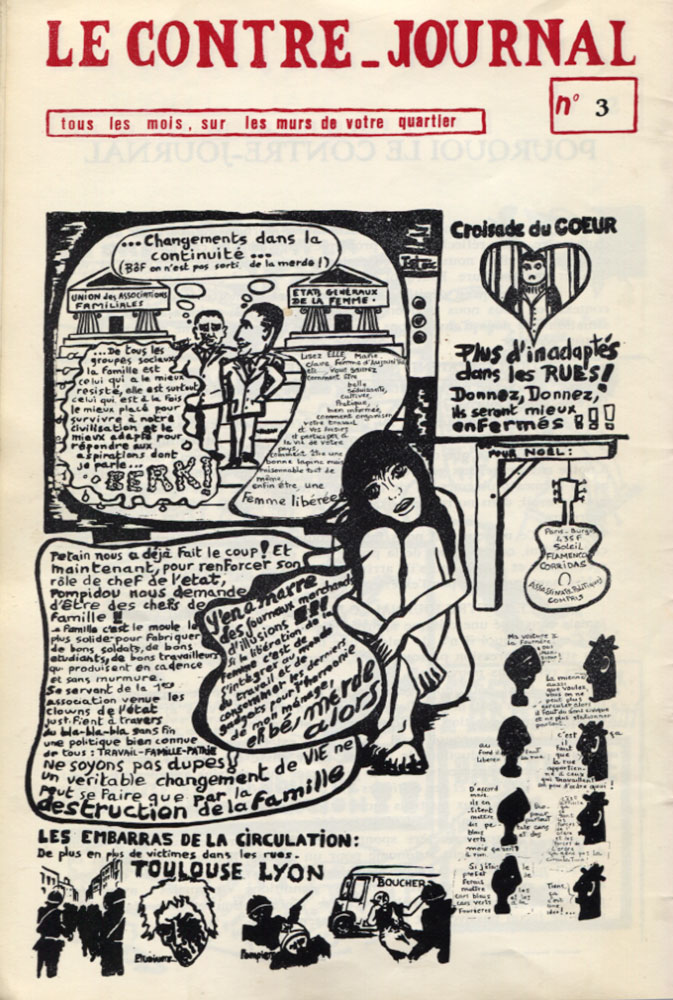 LE CONTRE_JOURNAL
n° 3
tous les mois, sur les murs de votre quartier
...Changements dans la
continuité ...
(Bôf on n'est pas sorti de la merde!)
UNION des ASSOCIATIONS
FAMILIALES
ETATS GENERAUX
DE LA FEMME.
...De tous les
groupes sociaux
la famille est
celui qui a le mieux
résisté, elle est surtout
celui qui est à la fois
le mieux placé pour
survivre à notre
civilisation et le
mieux adapté pour
répondre aux
aspirations dont
je parle...
BERK!
Lisez ELLE, Marie
Claire, Femme d'Aujourd'hui
etc... vous saurez
comment être
belle
séduisante,
cultivée,
Pratique,
bien informée,
comment organiser
votre travail
et vos loisirs
et participer à
la vie de votre
pays,
comment être une
bonne lapine mais
raisonnable tout de
même
enfin être une
Femme libérée
Croisade du COEUR
Plus d'inadaptés
dans les RUES!
Donnez, Donnez,
ils seront mieux
enfermés !!!
POUR NOËL:
Paris-Burgos
435F
SOLEIL
FLAMENCO
CORRIDAS
Assassinats Politiques
COMPRIS
Petain nous a déjà fait le coup! Et
maintenant, pour renforcer son
rôle de chef de l'etat,
Pompidou nous demande
d'être des chefs de
famille !!
"Famille c'est le moule le
plus solide pour fabriquer
de bons soldats, de bons
étudiants, de bons travailleurs
qui produisent en cadence
et sans murmure.
Se servant de la 1ère
association venue les
clowns de l'état
justifient à travers
du bla-bla-bla sans fin
une politique bien connue
de tous: TRAVAIL-FAMILLE-PATRIE
Ne soyons pas dupes!!
un véritable changement de VIE ne
peut se faire que par la
destruction de la Famille
J'en ai marre
des journaux marchands
d'illusions !!!
Si la libération de la
femme c'est de
s'intégrer au monde
du travail et de
consommer les derniers
gadgets pour l'harmonie
de mon ménage!
eh bé, merde
alors
Ma voiture à
la Fourrière
La mienne
aussi
que voulez
vous on ne
peut plus
circuler alors
il faut des zones bleues
et ne plus stationner
partout.
au
fond il faut
libérer la rue
c'est ça
il
faut
que
la rue
appartien-
ne à ceux
qui travaillent
D'accord
mais
ils en
sitent
mettre
dis pe
bleus
verts
Si j'étais le
préfet
ferais
mettre
Tiens,
ça
c'est
une
idée!...
LES EMBARRAS DE LA CIRCULATION:
De plus en plus de victimes dans les rues.
TOULOUSE LYON
Pompier
BOUCHER